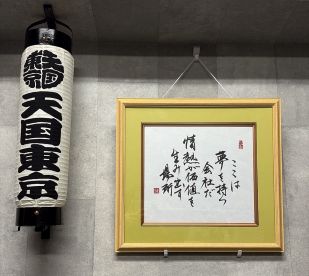 天国東京
ここは
夢を持ち
会社だ
情熱が価値を
生み出す
場所